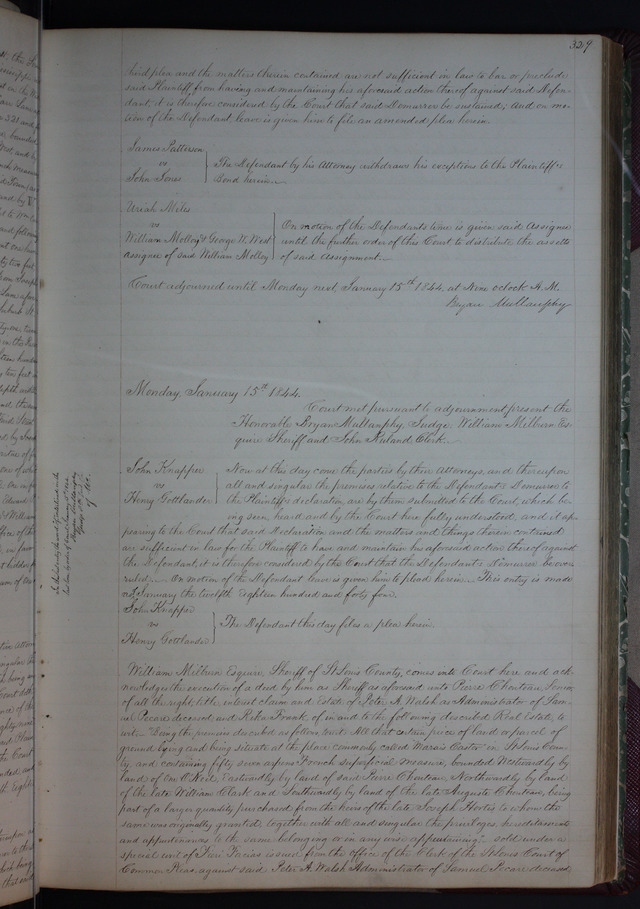 329
third plea and the matters therein contained are not sufficient in law to bar or preclude
said Plaintiff from having and maintaining his aforesaid action thereof against said Defen-
dant, it is therefore considered by the Court that said Demurrer be sustained; and on mo-
tion of the Defendant leave is given him to file an amended plea herein.
James Patterson
vs
John Jones
The Defendant by his Attorney withdraws his exceptions to the Plaintiffs
Bond herein
Uriah Miles
vs
William Molloy & George W. West
assignee of said William Molloy
On motion of the Defendants time is given said Assignee
until the further order of this Court to distribute the assetts
of said assignment.
Court adjourned until Monday next January 15th 1844. at Nine oclock A.M.
Bryan Mullanphy
Monday, January 15th 1844.
Court met pursuant to adjournment present the
Honorable Bryan Mullanphy, Judge, William Milburn Es-
quire Sheriff and John Ruland Clerk.
John Knapper
vs
Henry Gottlander
Now at this day come the parties by their Attorneys, and thereupon
all and singular the premises relative to the Defendants Demurrer to
the Plaintiffs declaration, are by them submitted to the Court, which be-
ing seen, heard and by the Court here fully understood, and it ap-
pearing to the Court that said Declaration and the matters and things therein contained
are sufficient in law for the Plaintiff to have and maintain his aforesaid action thereof against
the Defendant, it is therefore considered by the Court that the Defendants Demurrer be over
ruled. On motion of the Defendant leave is given him to plead herein. This entry is made
as of January the twelfth Eighteen hundred and forty four.
John Knapper
vs
Henry Gottlander
The Defendant this day files a plea herein
William Milburn Esquire, Sheriff of St Louis County, comes into Court here and ack
nowledges the execution of a deed by him as Sheriff as aforesaid unto Pierre Chouteau Senior
of all the right, title, interest claim and Estate of Peter A. Walsh as Administrator of Sam-
uel Pecare deceased and Reka Frank of in and to the following described Real Estate, to
wit. Being the premises described as follows, to wit: All that certain piece of land or parcel of
ground lying and being situate at the place commonly called Marais Castor in St Louis Coun-
ty, and containing fifty seven arpens French superficial measure, bounded Westwardly by
land of One O'Neil, Eastwardly by land of said Pierre Chouteau, Northwardly by land
of the late William Clark and Southwardly by land of the late Auguste Chouteau, being
part of a larger quantity purchased from the heirs of the late Joseph Hortez to whom the
same was originally granted, together with all and singular the privileges, hereditaments
and appurtenances to the same belonging or in any wise appertaining: sold under a
special writ of Fieri Facias issued from the office of the Clerk of the St Louis Court of
Common Pleas, against said Peter A. Walsh Administrator of Samuel Pecare deceased,